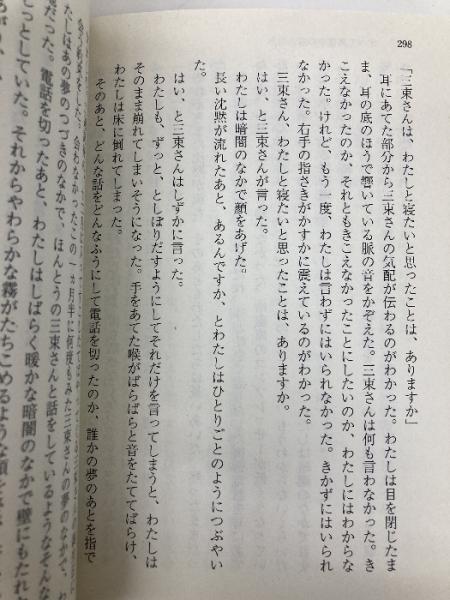 298
「三束さんは、わたしと寝たいと思ったことは、ありますか」
耳にあてた部分から三束さんの気配が伝わるのがわかった。わたしは目を閉じたま
ま、耳の底のほうで響いている脈の音をかぞえた。三束さんは何も言わなかった。き
こえなかったのか、それともきこえなかったことにしたいのか、わたしにはわからな
かった。けれど、もう一度、わたしは言わずにはいられなかった。きかずにはいられ
なかった。右手の指さきがかすかに震えているのがわかった。
三束さん、わたしと寝たいと思ったことは、ありますか。
はい、と三束さんが言った。
わたしは暗闇のなかで顔をあげた。
長い沈黙が流れたあと、あるんですか、とわたしはひとりごとのようにつぶやい
た。
はい、と三束さんはしずかに言った。
わたしも、ずっと、としぼりだすようにしてそれだけを言ってしまうと、わたしは
そのまま崩れてしまいそうになった。手をあてた喉がばらばらと音をたててばらけ、
わたしは床に倒れてしまった。
そのあと、どんな話をどんなふうにして電話を切ったのか、誰かの夢のあとを指で
一ヵ月半に何度もみた三束さんの夢のなかで、
たしはあの夢のつづきのなかで、ほんとうの三束さんと話をしているようなそんな
だった。電話を切ったあと、わたしはしばらく暖かな暗闇のなかで壁にもたれ
っとしていた。それからやわらかな霧がたちこめるような